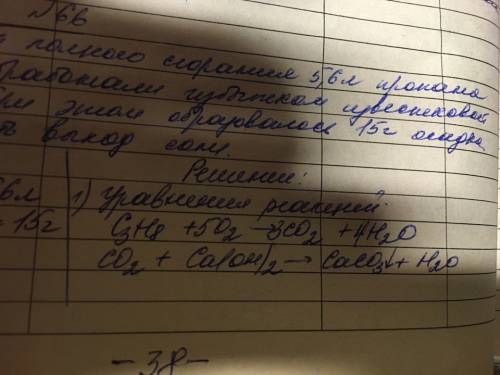 №66
полного сгорания 5,6л пропана
избытком известковой
При этом образовалось 15г осадка
выход соли.
Решение:
6л | 1) Уравнения реакций:
= 15г | C3H8 + 5O2 → 3CO2 + 4H2O
CO2 + Ca(OH)2 → CaCO3↓ + H2O
- 38 -